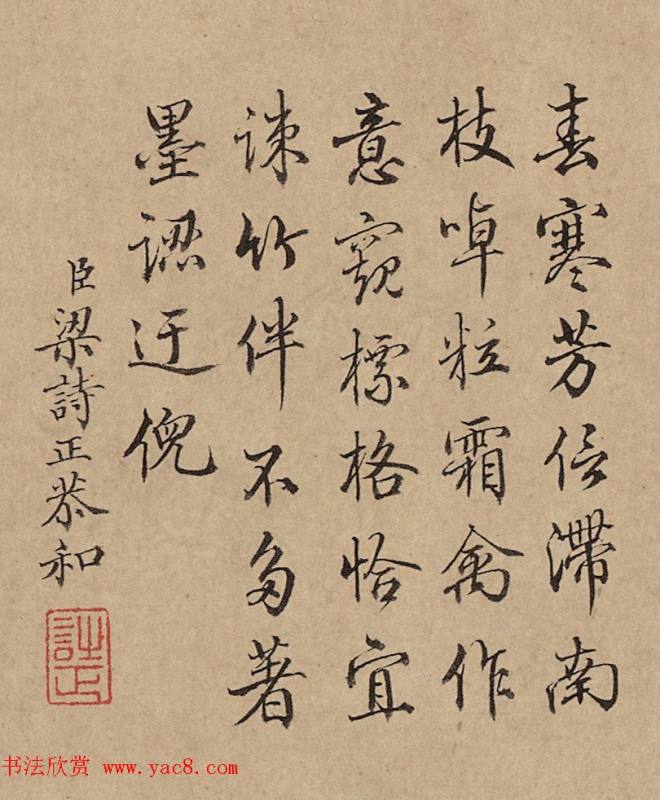 春寒芳信滯南
枝啅粒霜禽作
意窺標格恰宜
疎竹伴不多著
墨認迂倪
臣梁詩正恭和
詩正
书法欣赏 www.yac8.com